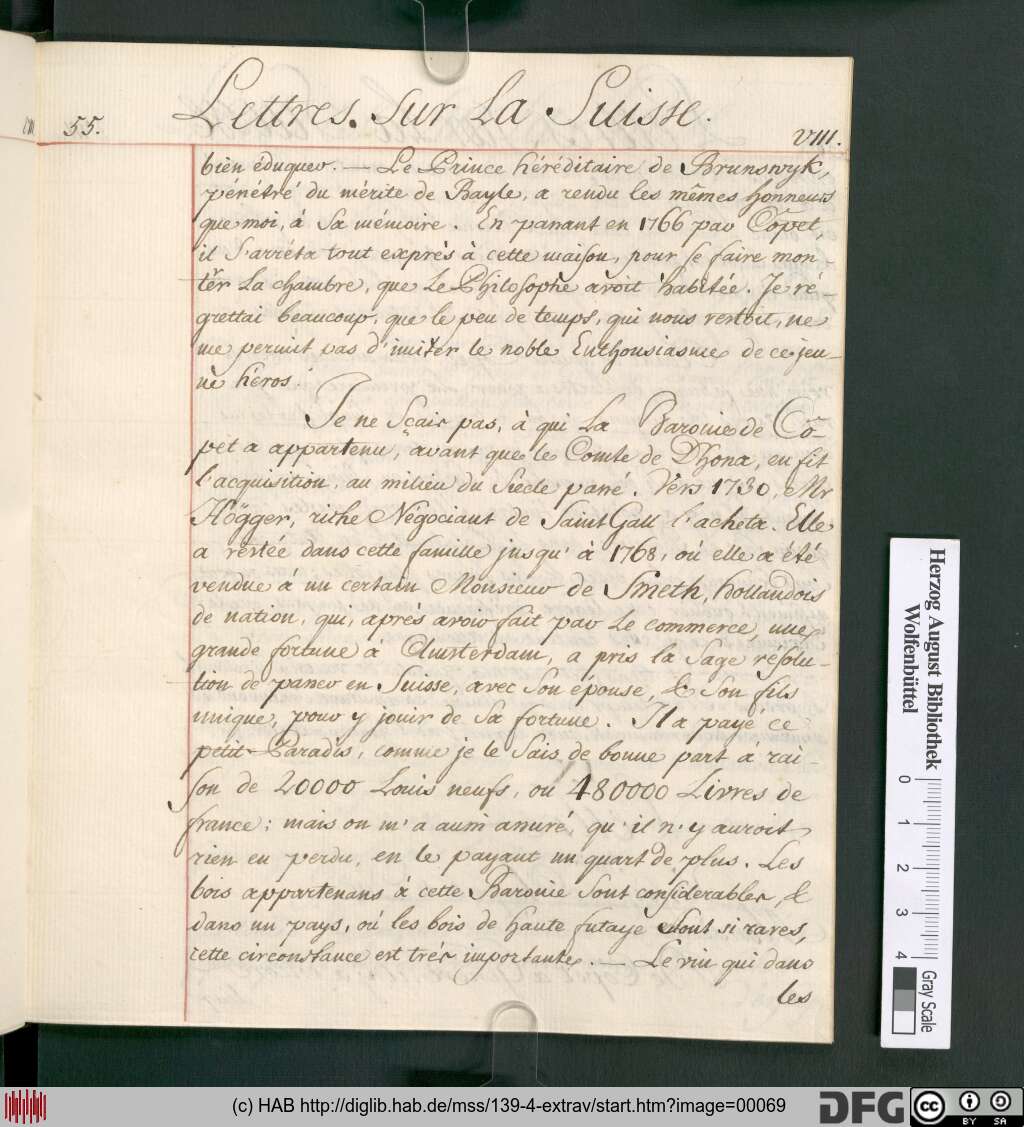 Lettres. sur La Suisse.
55.
VIII.
bien éduquer. — Le Prince héréditaire de Brunswyk,
pénétré du mérite de Bayle, a rendu les mêmes honneurs
que moi, à sa mémoire. En passant en 1766 par Côpet,
il s'arrêta tout exprès à cette maison, pour se faire mon-
trer La chambre, que Le Philosophe avoit habitée. Je ré-
grettai beaucoup, que le peu de temps, qui nous restoit, ne
me permit pas d'imiter le noble Enthousiasme de ce jeu-
ne héros.
Je ne sçais pas, à qui La Baronie de Cô-
pet a appartenu, avant que le Comte de Dhona, en fit
l'acquisition, au milieu du siecle passé. Vers 1730, Mr
Högger, riche Négociant de Saint Gall l'acheta. Elle
a restée dans cette famille jusqu'à 1768, où elle a été
vendue à un certain Monsieur de Smeth, hollandois
de nation, qui, après avoir fait par Le commerce, une
grande fortune à Amsterdam, a pris la sage résolu-
tion de passer en Suisse, avec son épouse, & son fils
unique, pour y jouir de sa fortune. Il a payé ce
petit Paradis, comme je le sais de bonne part à rai-
son de 20000 Louis neufs, ou 480000 Livres de
france; mais on m'a aussi assuré, qu'il n'y auroit
rien eu perdu, en le payant un quart de plus. Les
bois appartenans à cette Baronie sont considerables, &
dans un pays, où les bois de haute futaye sont si rares,
cette circonstance est très importante. — Le vin qui dans
les
Herzog August Bibliothek
Wolfenbüttel
0 1 2 3 4
Gray Scale
(c) HAB http://diglib.hab.de/mss/139-4-extrav/start.htm?image=00069
DFG
cc BY SA